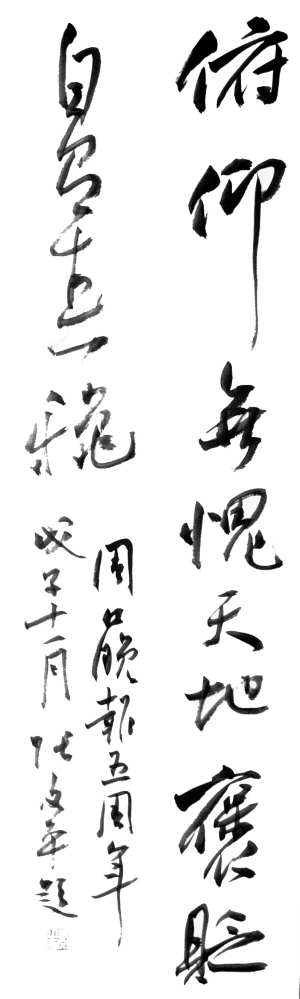 俯仰無愧天地褒貶
自有春龝
周口晚報五周年
戊子十一月 題